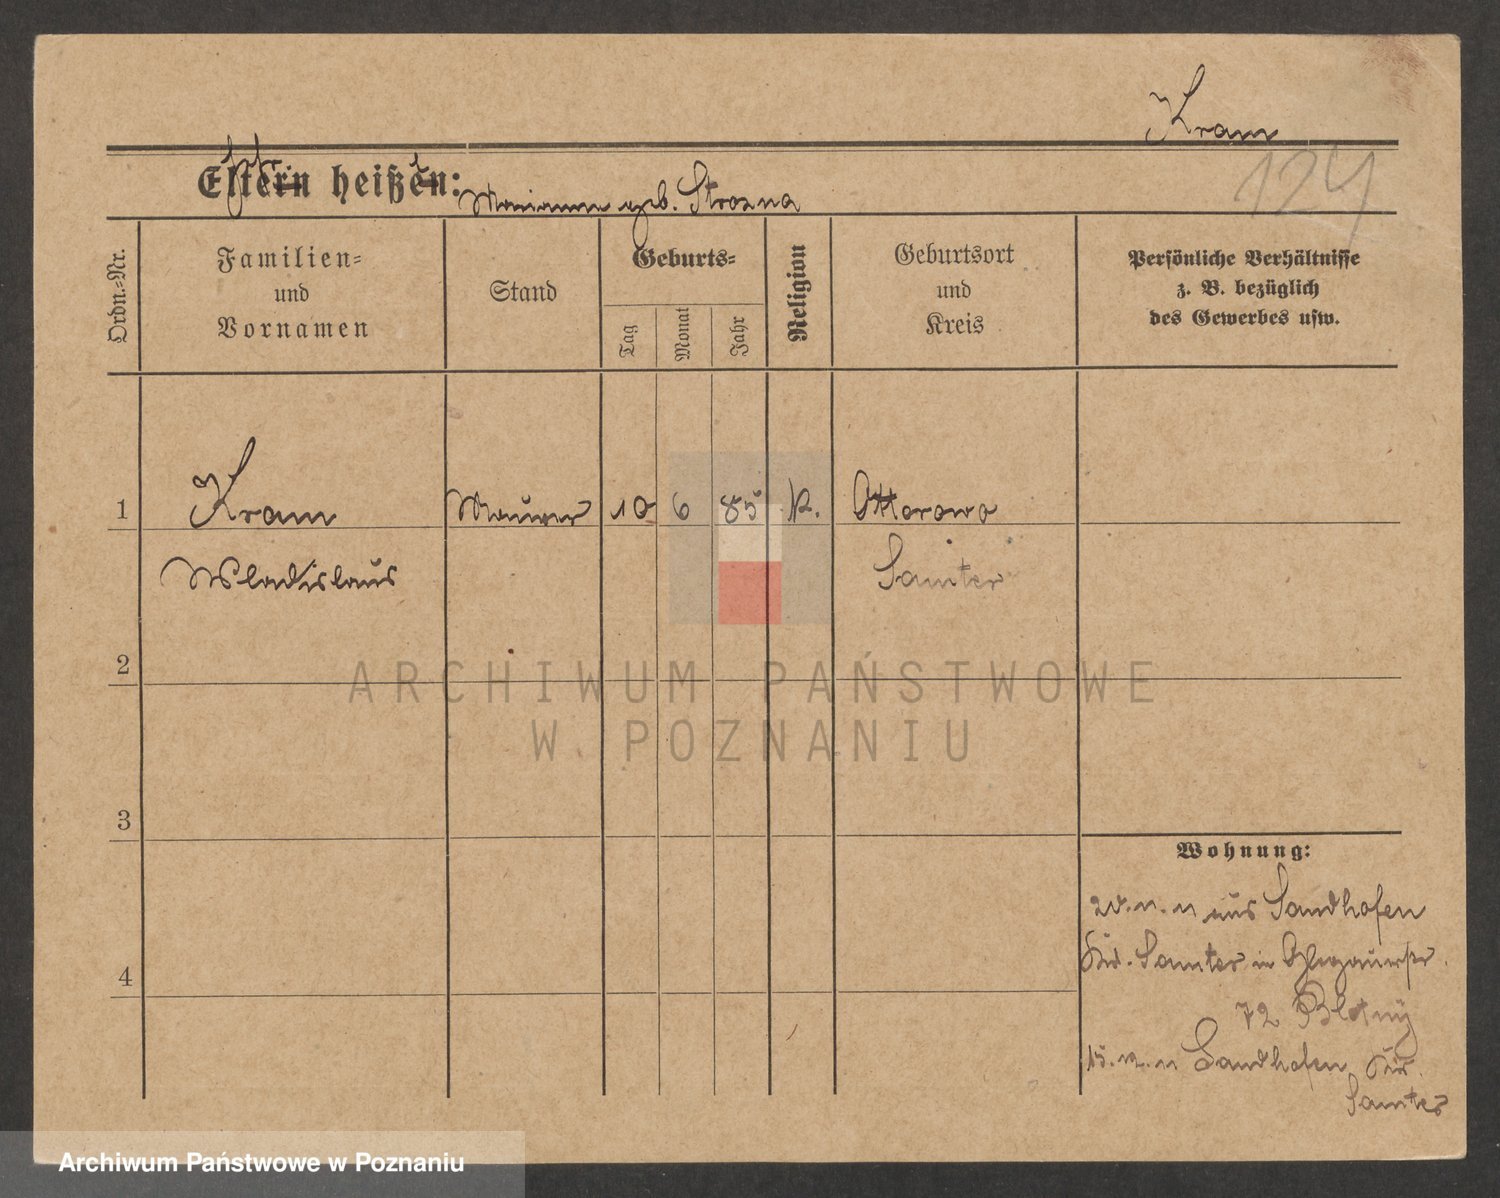 Kram
124
Eltern heißen: Marianna geb. Strozna
Ordn.-Nr.
Familien-
und
Vornamen
Stand
Geburts-
Tag
Monat
Jahr
Religion
Geburtsort
und
Kreis
Persönliche Verhältnisse
z. B. bezüglich
des Gewerbes usw.
1
Kram
Maurer
10
6
85
K.
Ottorowo
Wladislaus
Samter
2
ARCHIWUM PAŃSTWOWE
W POZNANIU
3
Wohnung:
aus Sandhofen
Samter in Glogauerstr.
4
72 Blotny
Sandhofen
Samter
Archiwum Państwowe w Poznaniu